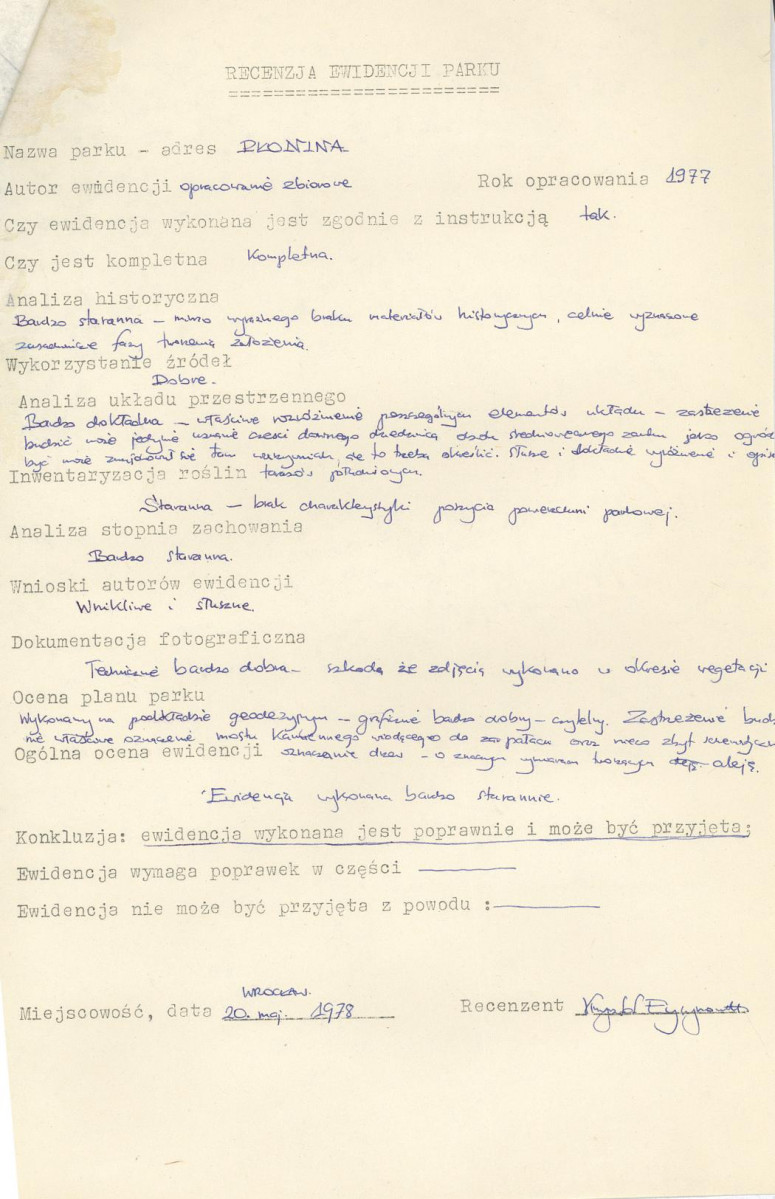 RECENZJA EWIDENCJI PARKU
========================
Nazwa parku - adres PŁONINA
Autor ewidencji opracowanie zbiorowe Rok opracowania 1977
Czy ewidencja wykonana jest zgodnie z instrukcją tak.
Czy jest kompletna Kompletna.
Analiza historyczna
Bardzo staranna – mimo wyraźnego braku materiałów historycznych, celnie wyznaczone
zasadnicze fazy tworzenia założenia.
Wykorzystanie źródeł
Dobre.
Analiza układu przestrzennego
Bardzo dokładna – właściwe rozróżnienie poszczególnych elementów układu – zastrzeżenie
budzić może jedynie uznanie części dawnego dziedzińca średniowiecznego zamku jako ogród
być może znajdował się tam, ale to trzeba określić. Słuszne i dokładne wyróżnienie i
Inwentaryzacja roślin tarasów południowych.
Staranna – brak charakterystyki poszycia powierzchni parkowej.
Analiza stopnia zachowania
Bardzo staranna.
Wnioski autorów ewidencji
Wnikliwe i słuszne.
Dokumentacja fotograficzna
Technicznie bardzo dobra – szkoda że zdjęcia wykonano w okresie wegetacji
Ocena planu parku
Wykonany na podkładzie geodezyjnym – graficznie bardzo dobry – czytelny. Zastrzeżenie
nie właściwe oznaczenie mostu kamiennego wiodącego do pałacu oraz nieco zbyt
Ogólna ocena ewidencji oznaczenie drzew – o znacznym wymiarze tworzących aleję.
Ewidencja wykonana bardzo starannie.
Konkluzja: ewidencja wykonana jest poprawnie i może być przyjęta;
Ewidencja wymaga poprawek w części
Ewidencja nie może być przyjęta z powodu :
WROCŁAW.
Miejscowość, data 20. maj. 1978 Recenzent